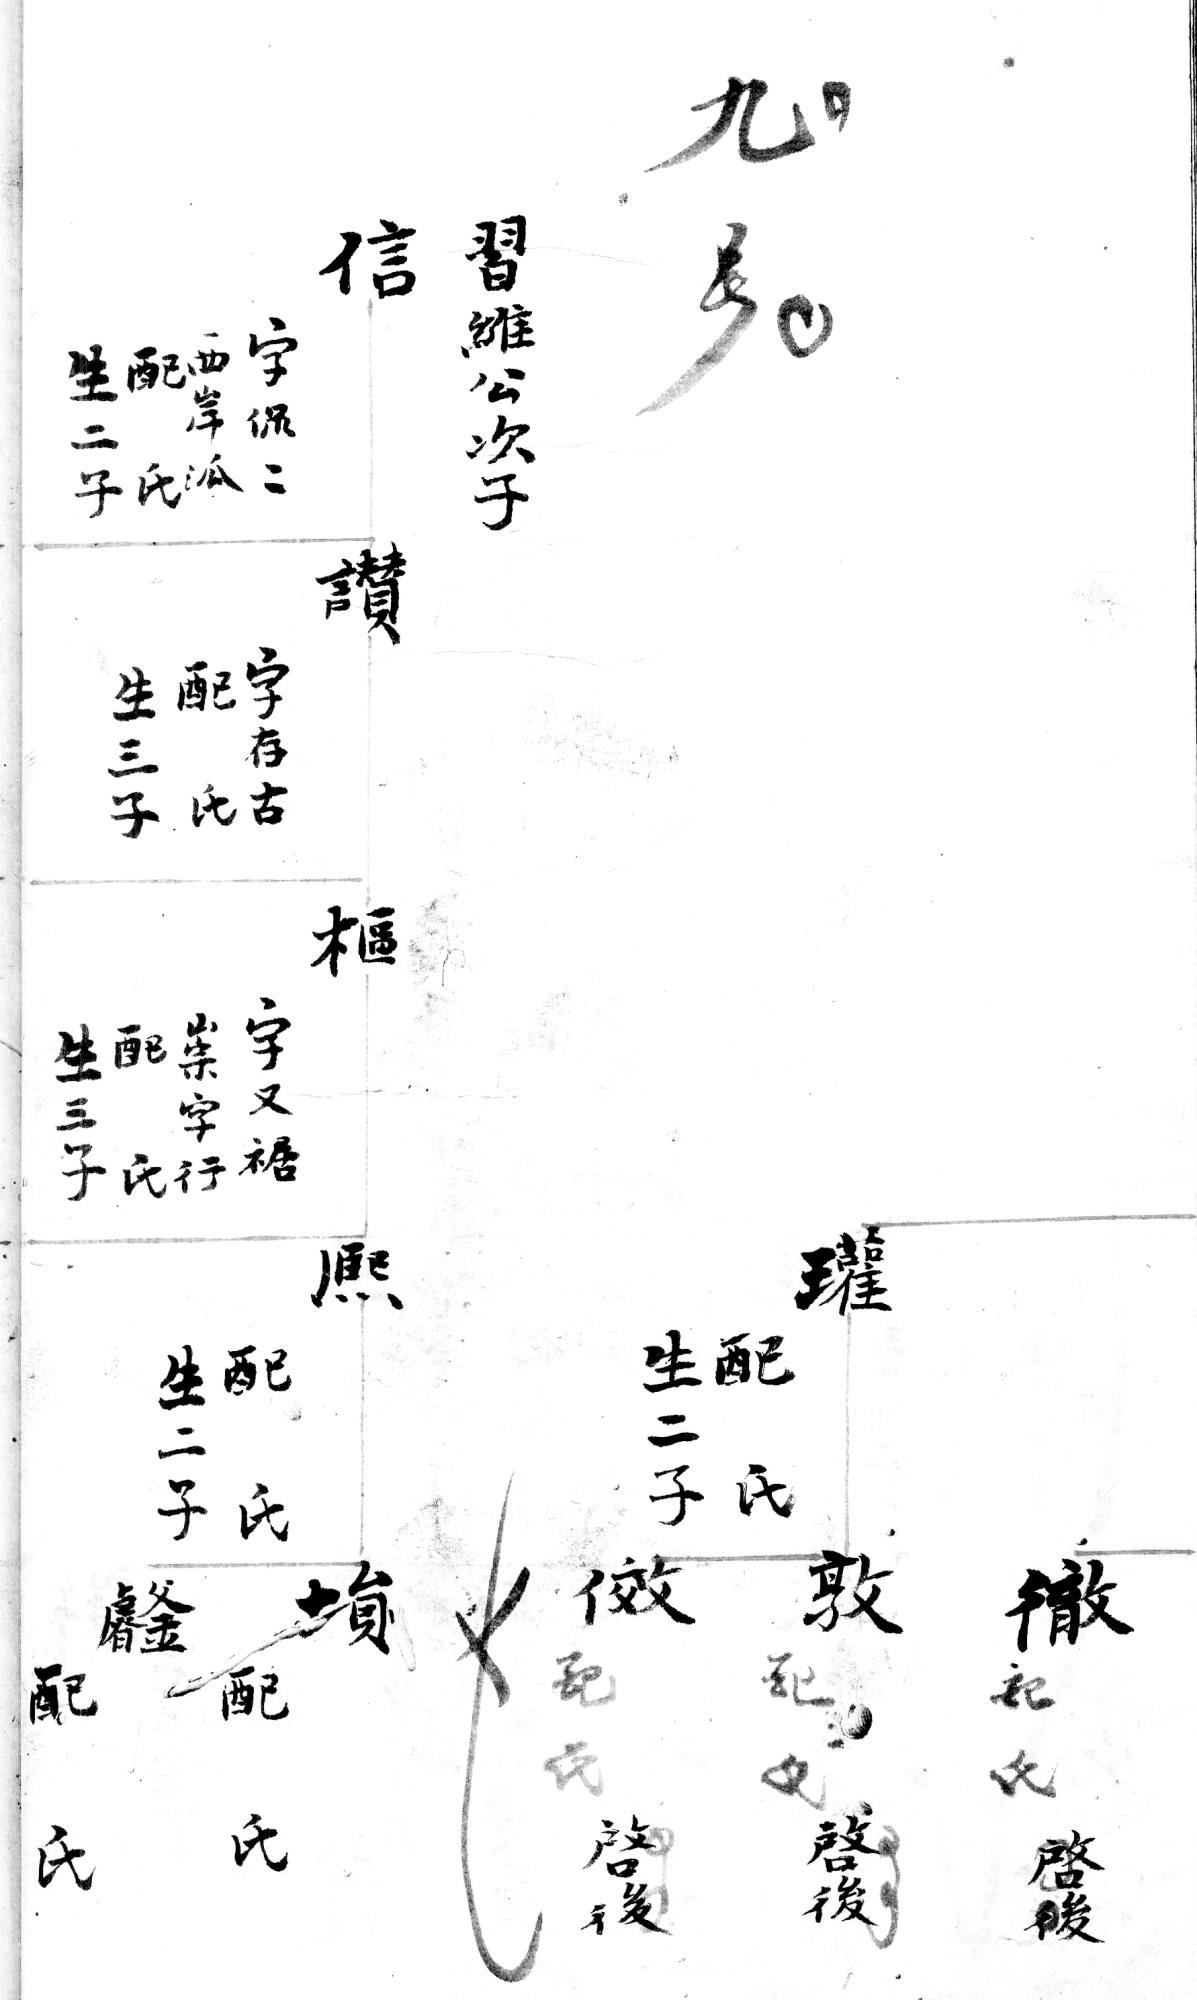 九号
瓘
配 氏
生二子
徹
配氏
啓後
敦
配氏
啓後
傚
配氏
啓後
習維公次子
信
字侃二
西岸派
配 氏
生二子
讃
字存古
配 氏
生三子
樞
字又裾
崇字行
配 氏
生三子
熈
配 氏
生二子
塤
配 氏
配 氏